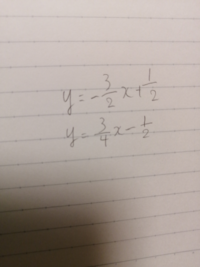 y = -3/2 x + 1/2
y = 3/4 x - 1/2